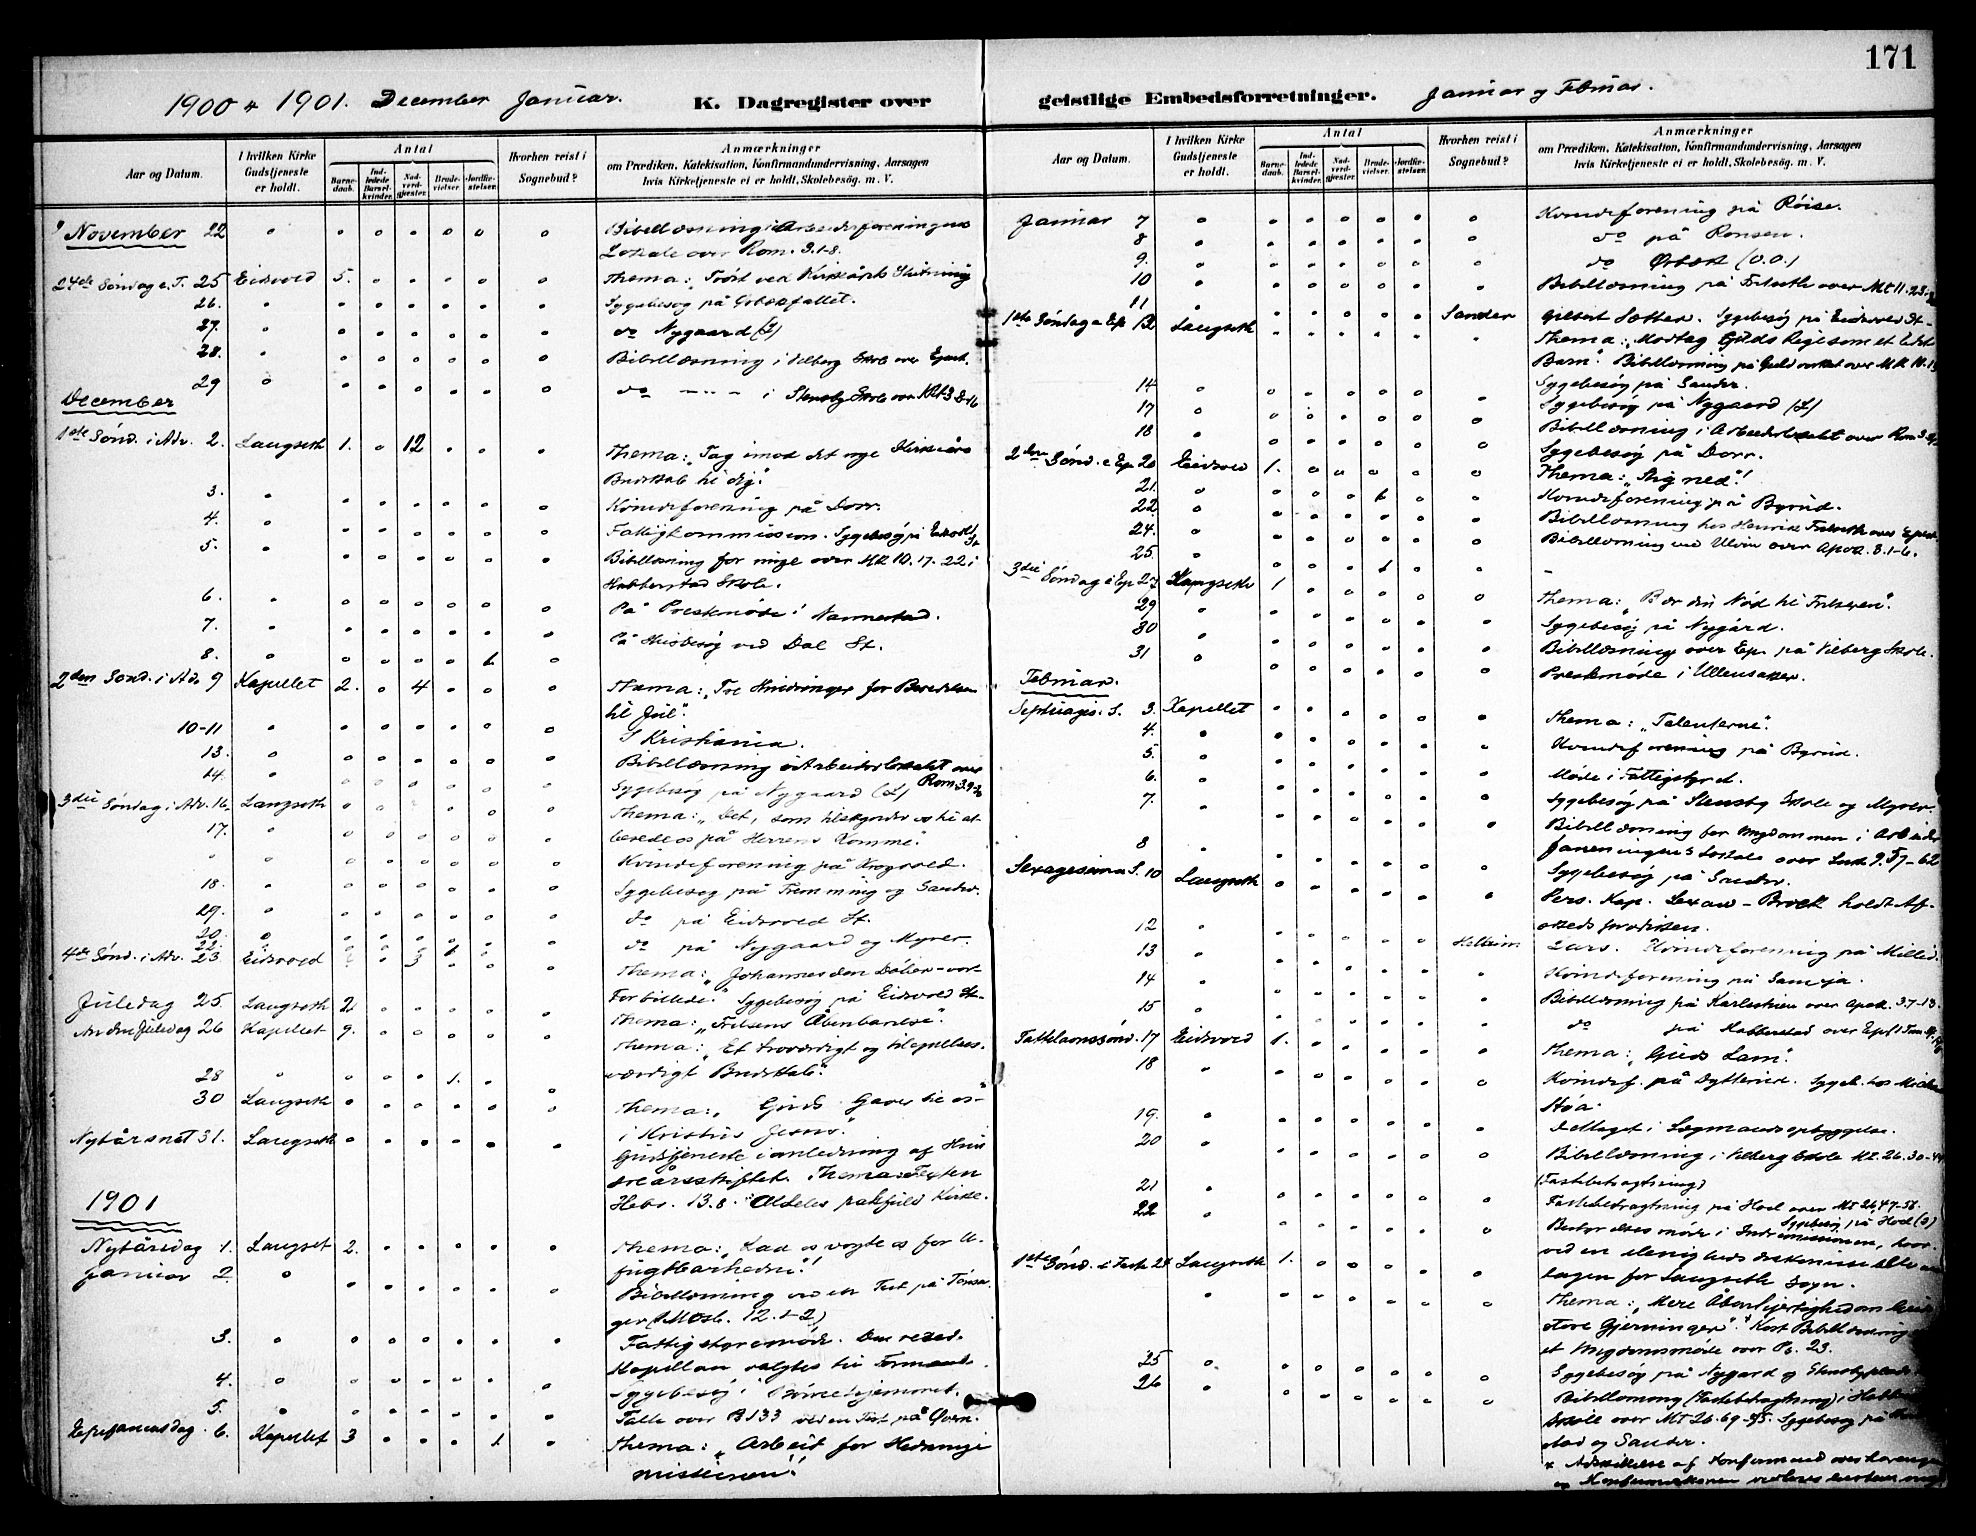 171
1900 & 1901. December Januar. K. Dagregister over
geistlige Embedsforretninger. Januar og Februar.
Aar og Datum.
I hvilken Kirke Gudstjeneste er holdt.
Antal
Barnedaab.
Indledede Barselkvinder.
Nadverdgjester.
Brudevielser.
Jordfæstelser.
Hvorhen reist i Sognebud?
Anmærkninger
om Prædiken, Katekisation, Konfirmandundervisning, Aarsagen
hvis Kirketjeneste ei er holdt, Skolebesög. m. V.
November 22 Bibellæsning i Arbeiderforeningens
Lokale over Rom. 3.1-8.
24de Søndag e. T. 25 Eidsvold 5. Thema: "Trøst ved Kirkeårets Slutning
26. Sygebesøg på
27. do Nygaard (2)
28. Bibellæsning i Vilberg Skole over
29 do i Stensby Skole over
December
1ste Sønd. i Adv. 2. Langseth 1. 12 Thema: "Tag imod det nye Kirkeårs
Budskab til dig."
3. Kvindeforening på Dorr.
4. Fattigkommission. Sygebesøg på Eidsvold St.
5. Bibellæsning for unge over Mk 10. 17. 22 i
Habberstad Skole.
6. På Præstemøde i Nannestad.
7. På Husbesøg ved Dal St.
8. 1
2den Sønd. i Adv. 9 Kapellet 2. 4 Thema: "Tre Hindringer for Beredelsen
til Jul".
10-11 I Kristiania.
13. Bibellæsning i Arbeiderlokalet over
14. Sygebesøg på Nygaard (L) Rom. 3.9-20
3die Søndag i Adv. 16. Langseth Thema: "Det, som tilskynder os til at
17. berede os på Herrens Komme".
Kvindeforening på Krogsvold.
18. Sygebesøg på Femming og Sander.
19. do på Eidsvold St.
20. do på Nygaard og Myrer.
22. 1
4de Sønd. i Adv. 23 Eidsvold 3 Thema: "Johannes den Døber – vort
Forbillede". Sygebesøg på Eidsvold St.
Juledag 25 Langseth 2 Thema: "Frelsens Åbenbarelse".
Anden Juledag 26 Kapellet 9. Thema: "Et troværdigt og tilegnelses-
værdigt Budskab".
28 1.
30 Langseth Thema: "Guds Gaver til os
i Kristus Jesus".
Nytårsnat 31. Langseth Gudstjeneste i anledning af Hun-
dreårsskiftet. Thema: Texten
Hebr. 13.8. Aldeles pakfuld Kirke.
1901
Nytårsdag 1. Langset 2. Thema: "Lad os vogte os for U-
frugtbarheden"!
Januar 2. Bibellæsning ved en Fest på Tønsa-
ger (1 Mosb. 12.1-2)
3. Fattigstyremøde. Den resid.
Kapellan valgtes til Formand.
4. Sygebesøg i Børnehjemmet.
5. Tale over Ps 133 ved en Fest på Øvern.
Epifaniasdag 6. Kapellet 3 1 Thema: "Arbeit for Hedninge
missionen"!
Januar 7 Kvindeforening på Røise.
8 do på Ronsen.
9. do Ørbæk (V.O.)
10 Bibellæsning på Frilseth over Mt 11. 23-
11 Sander Gilbert Sætter. Sygebesøg på Eidsvold St.
1ste Søndag e Ep 13 Langseth Thema: "Modtag Guds Rige som et lidet
Barn". Bibellæsning på Guldverket over Mk 10.13
14 Sygebesøg på Sander.
17 Sygebesøg på Nygaard (L)
18 Bibellæsning i Arbeiderlokalet over Rom 3.
2den Sønd. e Ep. 20 Eidsvold 1. Sygebesøg på Dorr.
21. Thema: "Stig ned"!
22 1 Kvindeforening på Byrud.
24. Bibellæsning hos Henrik Frilseth over
25 Bibellæsning ved Ulvin over Apok. 3.1-6.
3die Søndag e Ep 27 Langseth 1 1
29 Thema: "Bær din Nød til Frelseren".
30 Sygebesøg på Nygård.
31 Bibellæsning over Ep. på Vilberg Skole.
Februar. Præstemøde i Ullensaker.
Septuages. S. 3. Kapellet Thema: "Talenterne".
4. Kvindeforening på Byrud.
5. Møde i Fattigstyret.
6. Sygebesøg på Stensby Skole og Myrer.
7. Bibellæsning for Ungdommen i Arbeider
foreningens Lokale over Luk 9. 57-62
8 Sygebesøg på Sander.
Sexagesima S. 10 Langseth Pers. Kap. Lexau-Brock holdt Af-
skedsprædiken.
12 Lars. Kvindeforening på
13 Kvindeforening på
14 Bibellæsning på Karlsstuen over Apok. 3.7-13.
15 do på Habberstad over
Fastelavnssønd. 17 Eidsvold 1. Thema: "Guds Lam".
18 Kvindef. på Dytterud. Sygeb. hos
Høa.
19. Deltaget i Lægmandsopbyggelse.
20 Bibellæsning i Vilberg Skole Mt. 26. 30-
(Fastebetragtning)
21 Fastebetragtning på Hol over Mt 26.47-56.
Sygebesøg på Hol (2)
22 Bestyrelsesmøde i Indremissionen, hvor-
ved en
lagen for Langseth Sogn.
1ste Sønd. i Faste 24 Langseth 1. Thema: "Mere Åbenhjertighed om Guds
store Gjerninger". Kort Bibellæsning
et Ungdomsmøde over Ps. 23.
25 Sygebesøg på Nygaard og
26 Bibellæsning (Fastebetragtning) i
Skole over Mt 26.69-75. Sygebesøg på
stad og Sander.